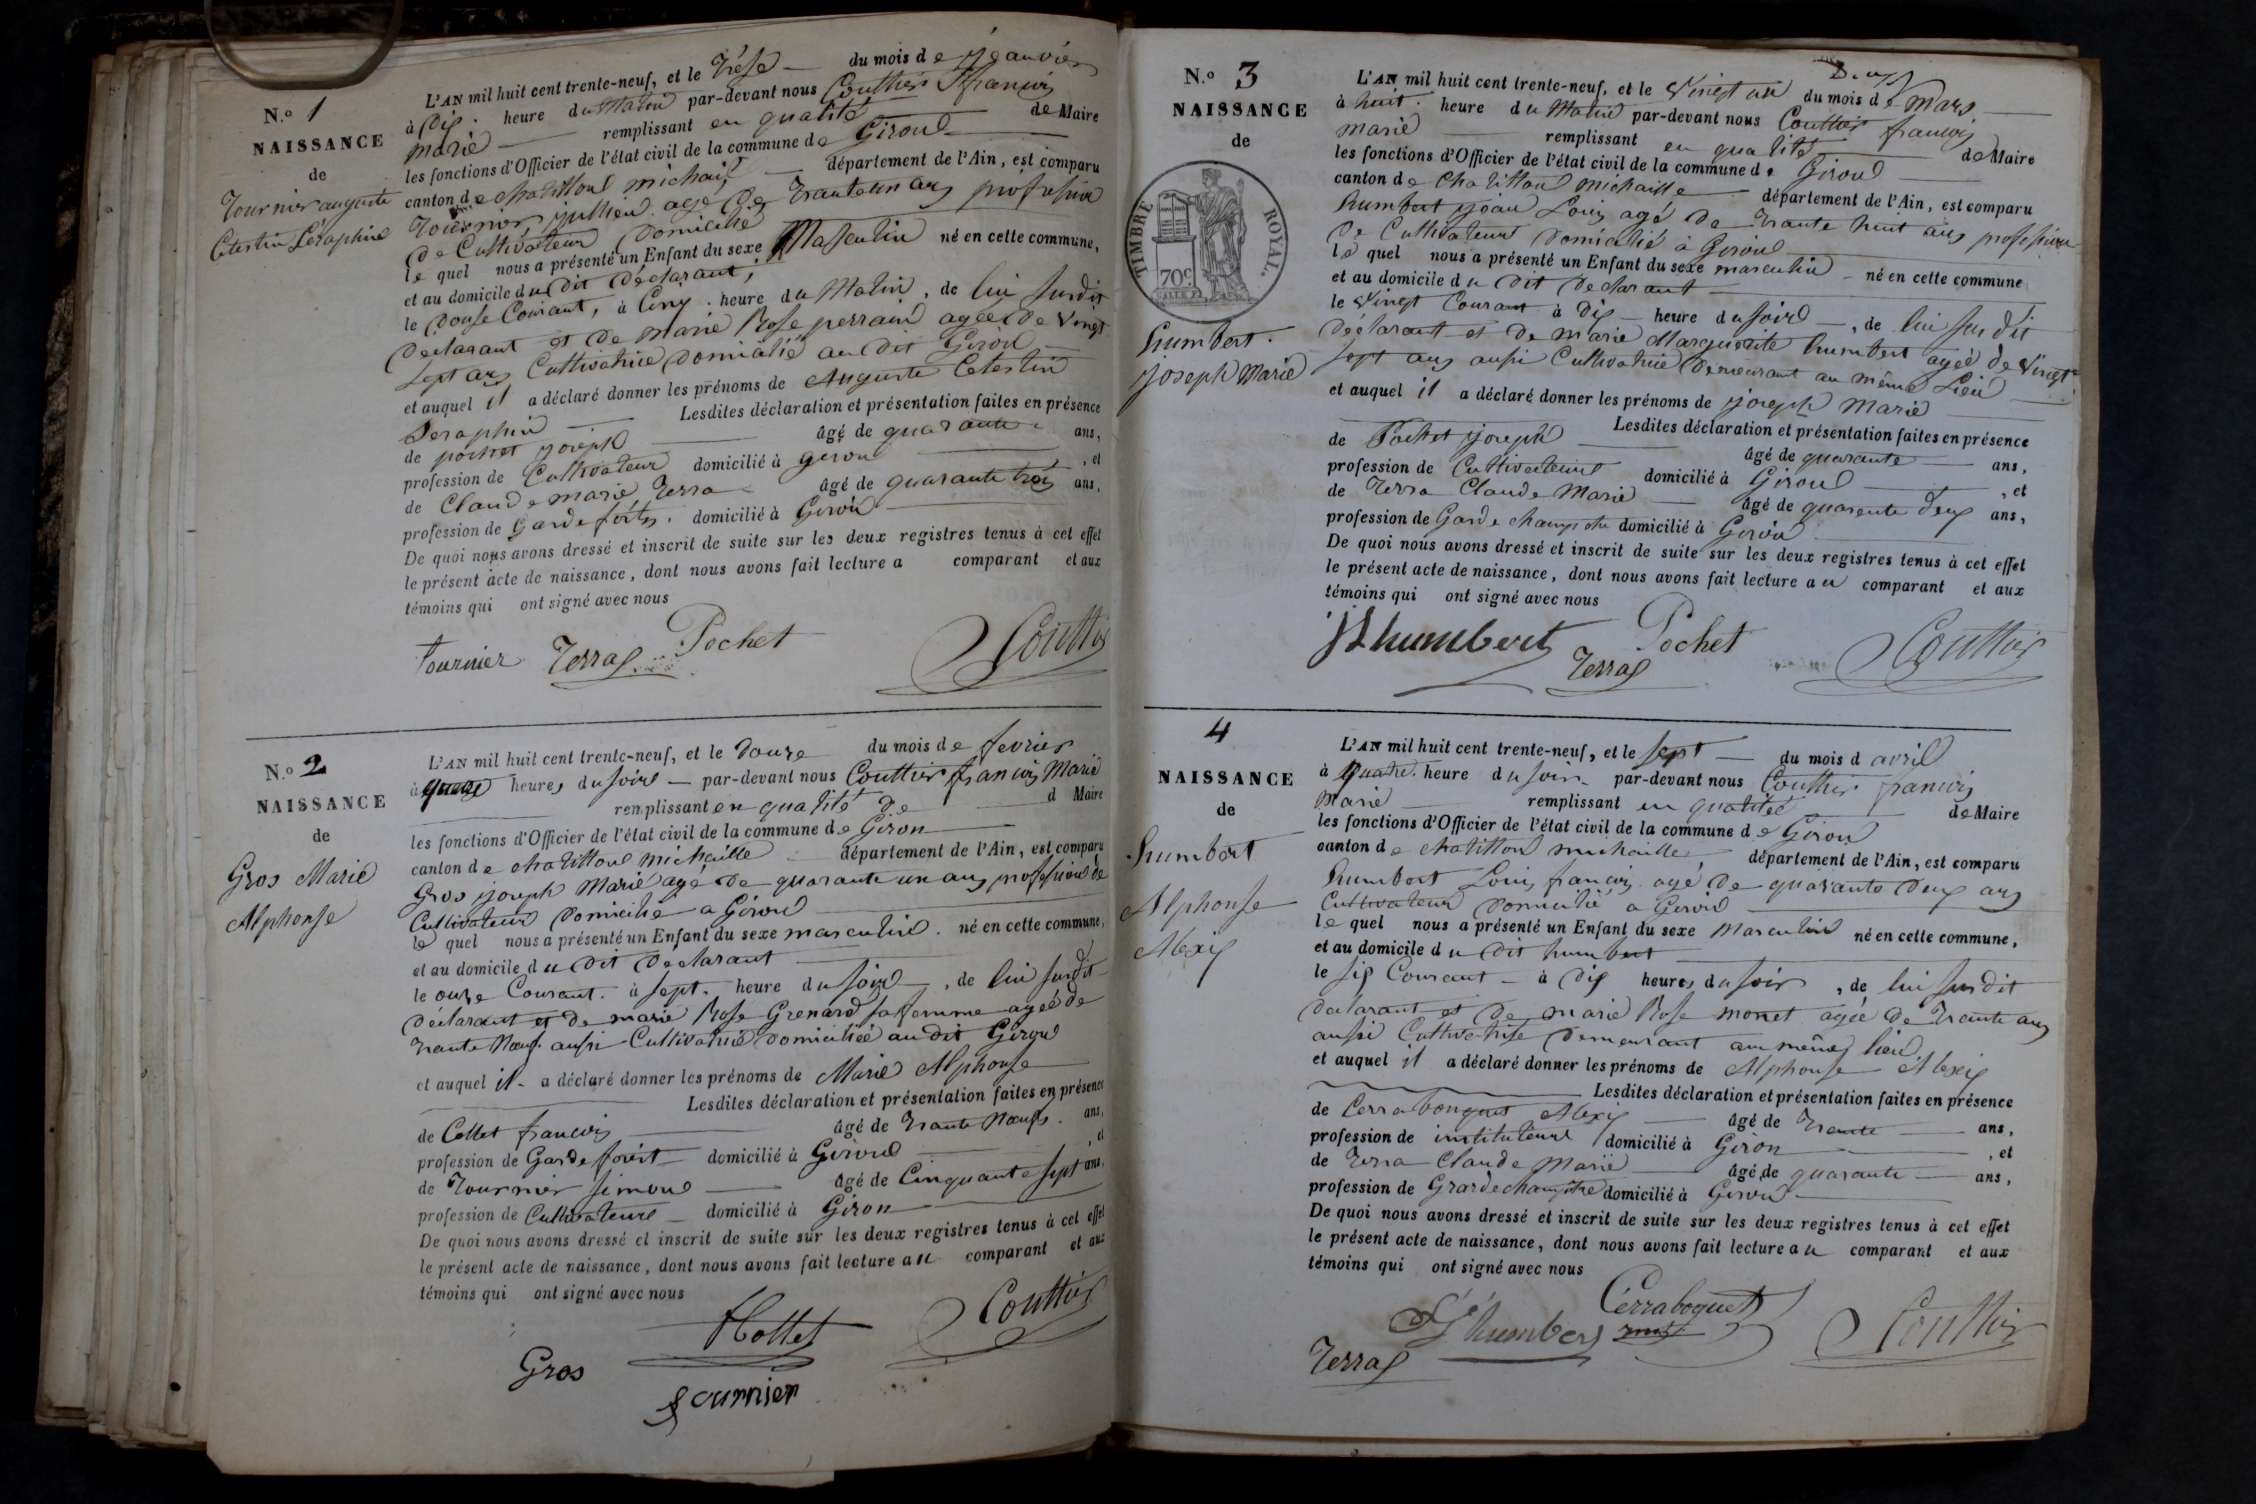 N.o 1
NAISSANCE
de
Tournier auguste
Celestin Séraphin
L'AN mil huit cent trente-neuf, et le Trése du mois de janvier
à Dix heure du Matin par-devant nous Couttier françois
marie remplissant en qualité de Maire
les fonctions d'Officier de l'état civil de la commune de Giron
canton de chatillon michaille département de l'Ain, est comparu
Tournier jullien agé de Trante un ans profession
de Cultivateur Domicilié
le quel nous a présenté un Enfant du sexe Masculin né en cette commune,
et au domicile du Dit Déclarant,
le Douse Courant, à Cinq heure du Matin, de lui Susdit
Déclarant et de marie Rose perrain agée de Vingt
Sept ans Cultivatrice Domicilié au dit Giron
et auquel il a déclaré donner les prénoms de Auguste Celestin
Seraphin Lesdites déclaration et présentation faites en présence
de pochet joseph âgé de quarante ans,
profession de Cultivateur domicilié à giron , et
de Claude marie Terra âgé de quarante trois ans,
profession de Garde forêts domicilié à Giron
De quoi nous avons dressé et inscrit de suite sur les deux registres tenus à cet effet
le présent acte de naissance, dont nous avons fait lecture a comparant et aux
témoins qui ont signé avec nous
Tournier Terraz Pochet Couttier
N.o 2
NAISSANCE
de
Gros Marie
Alphonse
L'AN mil huit cent trente-neuf, et le Douze du mois de fevrier
à heures du Soire par-devant nous Couttier françois Marie
remplissant en qualité de d Maire
les fonctions d'Officier de l'état civil de la commune de Giron
canton de chatillon michaille département de l'Ain, est comparu
Gros joseph Marie agé de quarante un ans profession de
Cultivateur Domicilié a Giron
le quel nous a présenté un Enfant du sexe masculin né en cette commune,
et au domicile du Dit Declarant
le onze Courant à Sept heure du Soir, de lui Susdit
Déclarant et de marie Rose Grenard sa femme agée de
Trante Neuf aussi Cultivatrice Domiciliée au dit Giron
et auquel il a déclaré donner les prénoms de Marie Alphonse
Lesdites déclaration et présentation faites en présence
de Collet françois âgé de Trante Neuf ans,
profession de Garde forêt domicilié à Giron , et
de Tournier Simon âgé de Cinquante Sept ans,
profession de Cultivateur domicilié à Giron
De quoi nous avons dressé et inscrit de suite sur les deux registres tenus à cet effet
le présent acte de naissance, dont nous avons fait lecture au comparant et aux
témoins qui ont signé avec nous
Gros Tournier Couttier
N.o 3
NAISSANCE
de
TIMBRE ROYAL
70c
humbert
joseph Marie
L'AN mil huit cent trente-neuf, et le Vingt un du mois de Mars
à huit heure du Matin par-devant nous Couttier françois
marie remplissant en qualité de Maire
les fonctions d'Officier de l'état civil de la commune de Giron
canton de Chatillon michaille département de l'Ain, est comparu
humbert jean Louis agé de Trante huit ans profession
de Cultivateur Domicilié à Giron
le quel nous a présenté un Enfant du sexe masculin né en cette commune
et au domicile du Dit Declarant
le Vingt Courant à Dix heure du Soire, de lui sus dit
Déclarant et de marie Marguerite humbert agée de Vingt
Sept ans aussi Cultivatrice Demeurant au même Lieu
et auquel il a déclaré donner les prénoms de joseph Marie
Lesdites déclaration et présentation faites en présence
de Pochet joseph âgé de quarante ans,
profession de Cultivateur domicilié à Giron , et
de Terra Claude Marie âgé de quarente Deux ans,
profession de Garde champetre domicilié à Giron
De quoi nous avons dressé et inscrit de suite sur les deux registres tenus à cet effet
le présent acte de naissance, dont nous avons fait lecture au comparant et aux
témoins qui ont signé avec nous
JL humbert Terraz Pochet Couttier
4
NAISSANCE
de
humbert
Alphonse
Alexis
L'AN mil huit cent trente-neuf, et le Sept du mois d avril
à quatre heure du Soir par-devant nous Couttier françois
marie remplissant en qualitée de Maire
les fonctions d'Officier de l'état civil de la commune de Giron
canton de chatillon michaille département de l'Ain, est comparu
humbert Louis françois agé de quarante Deux ans
Cultivateur Domicilié a Giron
le quel nous a présenté un Enfant du sexe Masculin né en cette commune,
et au domicile du Dit humbert
le six Courant à Dix heures du Soir, de lui Sus dit
Declarant et de marie Rose monet agée de Trante ans
aussi Cultivatrise Demeurant au même lieu
et auquel il a déclaré donner les prénoms de Alphonse Alexis
Lesdites déclaration et présentation faites en présence
de Cerraboquet Alexis âgé de Trente ans,
profession de instituteur domicilié à Giron , et
de Terra Claude Marie âgé de quarante ans,
profession de Grardechampitre domicilié à Giron
De quoi nous avons dressé et inscrit de suite sur les deux registres tenus à cet effet
le présent acte de naissance, dont nous avons fait lecture au comparant et aux
témoins qui ont signé avec nous
Terraz humbert Cerraboquet Couttier